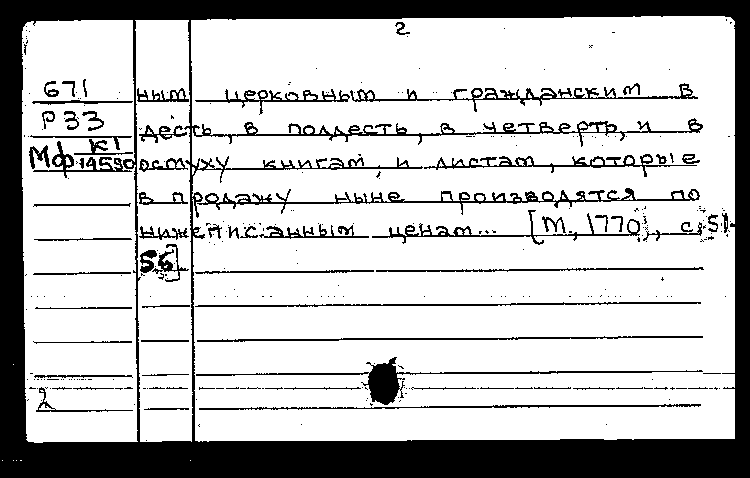 2
671
Р33
Мф К1
14590
ным церковным и гражданским в
десть, в полдесть, в четверть, и в
осмуху книгам, и листам, которые
в продажу ныне производятся по
нижеписанным ценам... [М., 1770], с. 51-
56].
2